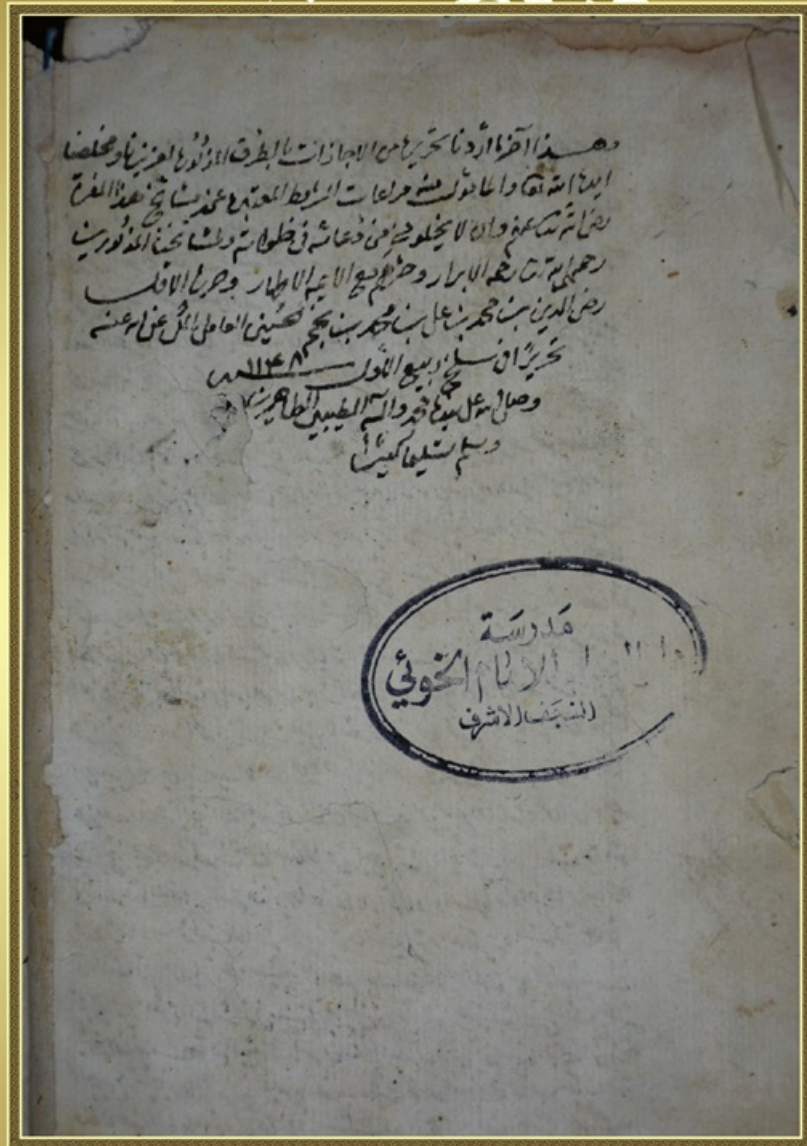 وهذا آخر ما أردنا تحريره من الاجازات بالطرق المذكورة لعزيزنا ومخلصنا
ايده الله تعا والمأمول منه مراعات الشرايط المعتبرة عند مشايخ هذا
رضي الله تعا عنهم وان لا يخلوني من دعائه في خلواته ولمشايخنا المذكورين
رحمهم الله تعا رحمة الابرار وحشرهم مع الائمة الاطهار وحررها الاقل
رضي الدين بن محمد بن علي بن محمد بن نجم الحسيني العاملي المكي عفى الله عنه
تحريرًا في سلخ ربيع الأول
وصلى الله على سيدنا محمد وآله الطيبين الطاهرين
وسلم تسليما كثيرًا
مَدرسَة
للامام الخوئي
النجف الاشرف